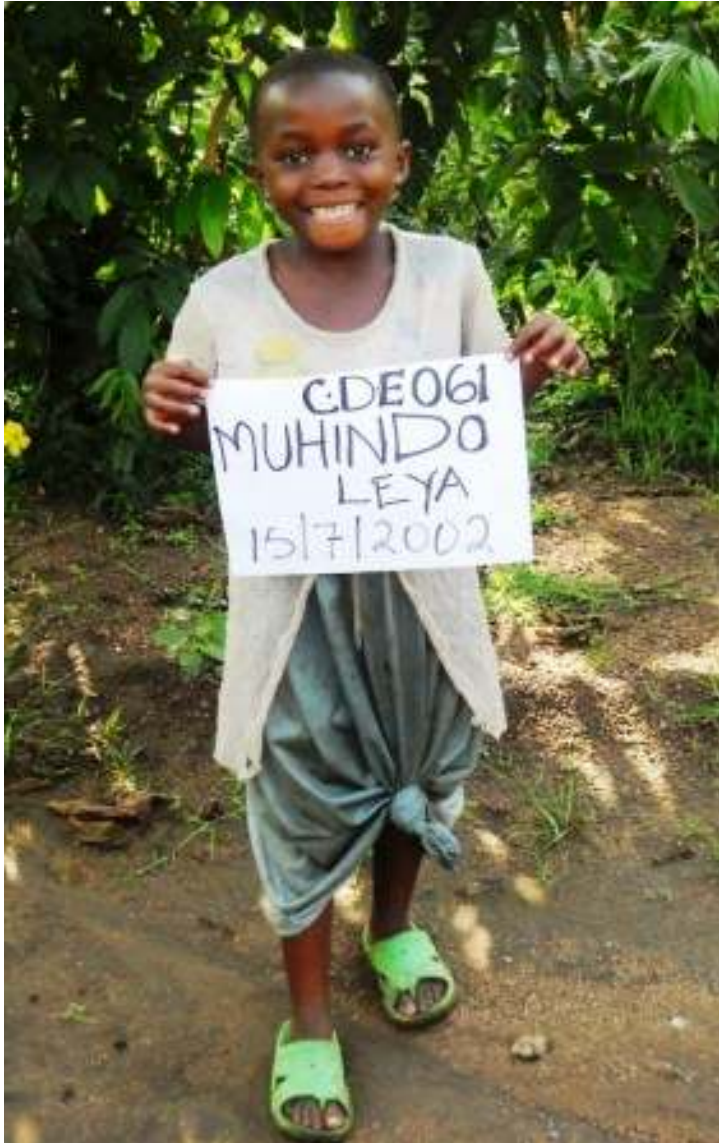 CDE061
MUHINDO
LEYA
15/7/2002